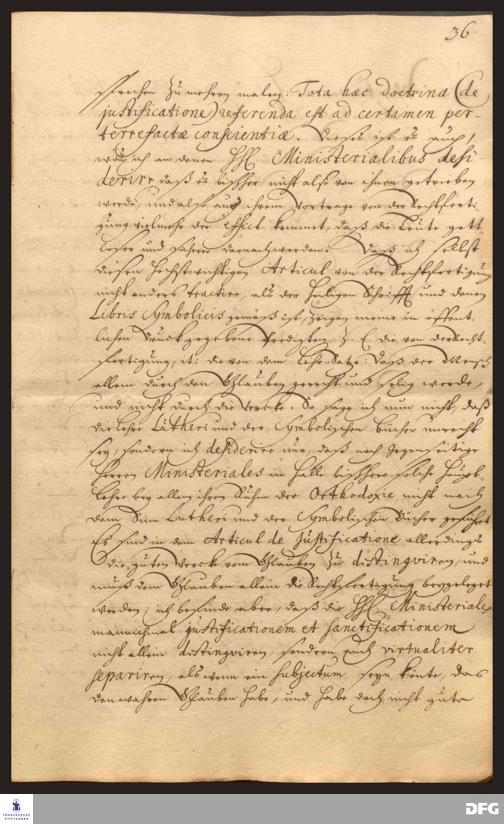 36.
sprechen zu mehren malen: Tota hæc doctrina (de
justificatione) referenda est ad certamen per-
terrefactæ conscientiæ. Dieses ist es auch,
was ich an denen HH. Ministerialibus desi-
derire daß es bißher nicht also von ihnen getrieben
werde, und also aus ihrem Vortrage von der Rechtferti-
gung vielmehr der effect kommet, daß die Leute gott-
loser und sicherer darnach werden. Daß ich selbst
diesen höchstwichtigen Articul von der Rechtfertigung
nicht anders tractire, als der Heiligen Schrifft und denen
Libris Symbolicis gemäß ist, zeigen meine in öffent-
lichen Druck gegebene Predigten, z. E. die von der Recht-
fertigung, it. die von dem Lehr-Satze: daß der Mensch
allein durch den Glauben gerecht und selig werde,
und nicht durch die Wercke. So sage ich nun nicht, daß
die lehre Lutheri und der Symbolischen bücher unrecht
sey, sondern ich desiderire nur, daß noch gegenseitige
Herren Ministeriales in Halle bißher solche Haupt-
Lehre bey allem ihren Ruhm der Orthodoxie, nicht nach
dem Sinn Lutheri und der Symbolischen Bücher geführet.
Es sind in dem Articul de Justificatione allerdings
die guten Wercke vom Glauben zu distingviren, und
muß dem Glauben allein die Rechtfertigung beygeleget
werden, ich befinde aber, daß die HH. Ministeriales
mannichmal justificationem et sanctificationem
nicht allein distingviren, sondern auch virtualiter
separiren, als wenn ein subjectum seyn könte, das
den wahren Glauben habe, und habe doch nicht gute
FRANCKESCHE STIFTUNGEN
DFG